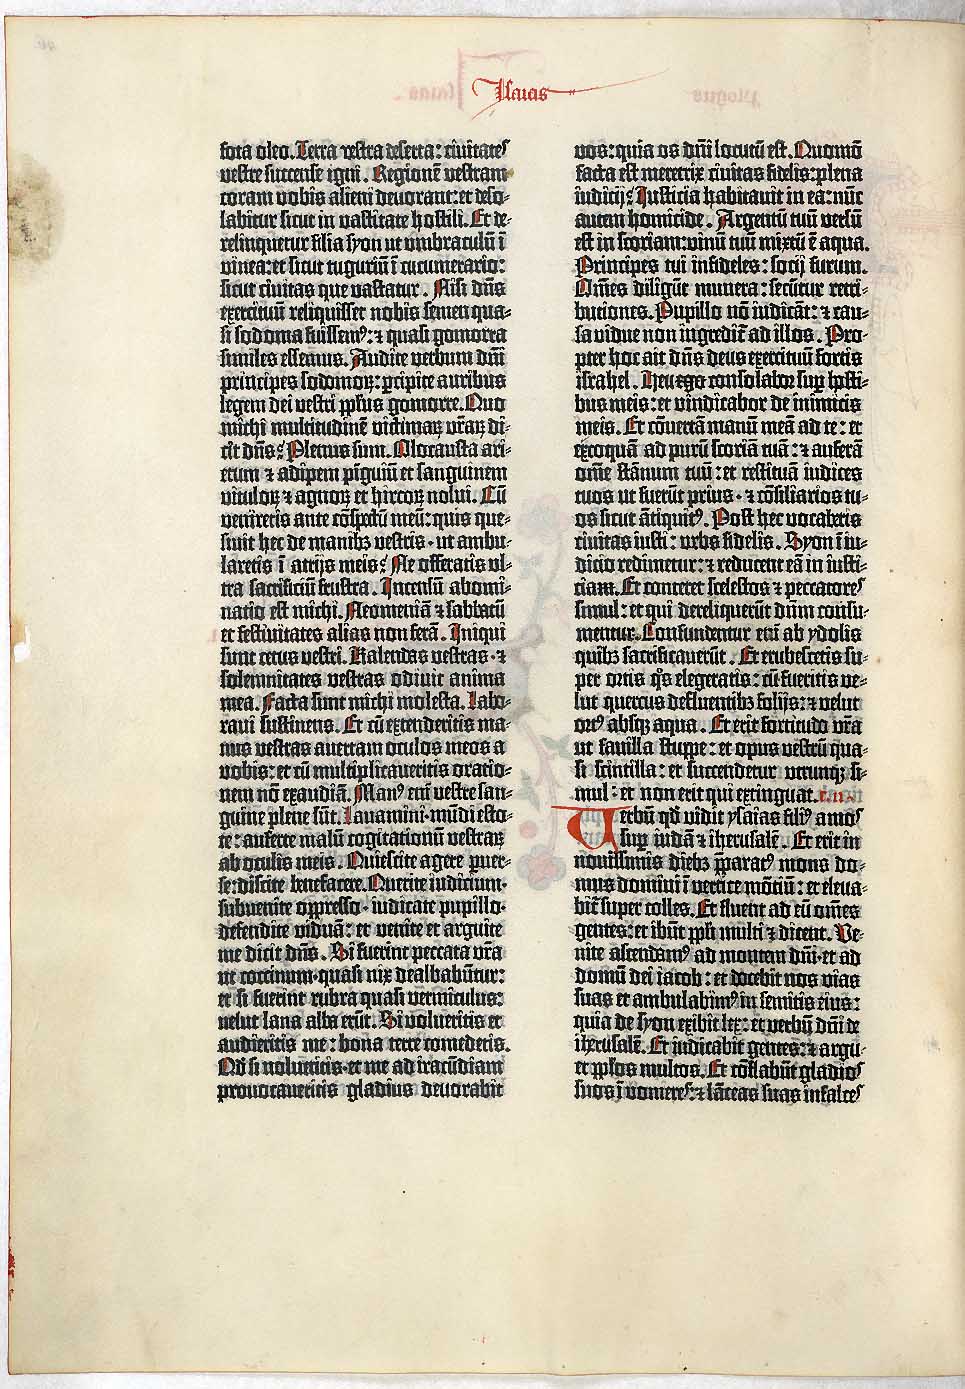 Isaias
fota oleo. Terra vestra deserta: civitates
vestre succense igni. Regionē vestram
coram vobis alieni devorant: et deso-
labitur sicut in vastitate hostili. Et de-
relinquetur filia syon ut umbraculū ī
vinea: et sicut tuguriū ī cucumerario:
sicut civitas que vastatur. Nisi dn̄s
exercituū reliquisset nobis semen qua-
si sodoma fuissemꝰ: ⁊ quasi gomorra
similes essemus. Audite verbum dn̄i
principes sodomoꝝ: ꝑcipite auribus
legem dei vestri ppl̄us gomorre. Quo
michi multitudinē victimaꝝ vr̄aꝝ di-
cit dn̄s? Plenus sum. Olocausta ari-
etum ⁊ adipem pīguiū et sanguinem
vituloꝝ ⁊ agnoꝝ et hircoꝝ nolui. Cū
veniretis ante cōspectū meū: quis que-
sivit hec de manibꝫ vestris · ut ambu-
laretis ī atrijs meis? Ne offeratis ul-
tra sacrificiū frustra. Incensū abomi-
natio est michi. Neomeniā ⁊ sabbatū
et festivitates alias non ferā. Iniqui
sunt cetus vestri. Kalendas vestras · ⁊
solemnitates vestras odivit anima
mea. Facta sunt michi molesta. Labo-
ravi sustinens. Et cū extenderitis ma-
nus vestras avertam oculos meos a
vobis: et cū multiplicaveritis oratio-
nem nō exaudiā. Manꝰ em̄ vestre san-
guine plene sūt. Lavamini · mūdi esto-
te: auferte malū cogitationū vestraꝝ
ab oculis meis. Quiescite agere ꝑver-
se: discite benefacere. Querite iudicium ·
subvenite oppresso · iudicate pupillo ·
defendite viduā: et venite et arguite
me dicit dn̄s. Si fuerint peccata vr̄a
ut coccinum · quasi nix dealbabūtur:
et si fuerint rubra quasi vermiculus:
velut lana alba erūt. Si volueritis et
audieritis me: bona terre comedetis.
Qd̄ si nolueritis · et me ad iracūdiam
provocaveritis gladius devorabit
vos: quia os dn̄i locutū est. Quomō
facta est meretrix civitas fidelis: plena
iudicij? Iusticia habitavit in ea: nūc
autem homicide. Argentū tuū versū
est in scoriam: vinū tuū mixtū ē aqua.
Principes tui infideles: socij furum.
Om̄es diligūt munera: secūtur retri-
butiones. Pupillo nō iudicāt: ⁊ cau-
sa vidue non ingredit̄ ad illos. Pro-
pter hoc ait dn̄s deus exercituū fortis
israhel. Heu ego consolabor suꝑ hosti-
bus meis: et vindicabor de inimicis
meis. Et cōvertā manū meā ad te: et
excoquā ad purū scoriā tuā: ⁊ auferā
om̄e stānum tuū: et restituā iudices
tuos ut fuerūt prius · ⁊ cōsiliarios tu-
os sicut ātiquitꝰ. Post hec vocaberis
civitas iusti: urbs fidelis. Syon ī iu-
dicio redimetur: ⁊ reducent eā in iusti-
ciam. Et conteret scelestos ⁊ peccatores
simul: et qui dereliquerūt dn̄m consu-
mentur. Confundentur em̄ ab ydolis
quibꝫ sacrificaverūt. Et erubescetis su-
per ortis q̄s elegeratis: cū fueritis ve-
lut quercus defluentibꝫ folijs: ⁊ velut
ortꝰ absqꝫ aqua. Et erit fortitudo vr̄a
ut favilla stuppe: et opus vestrū qua-
si scintilla: et succendetur utrunqꝫ si-
mul: et non erit qui extinguat. c. II.
Verbū qd̄ vidit ysaias filiꝰ amos
suꝑ iudā ⁊ iherusalē. Et erit in
novissimis diebꝫ p̄paratꝰ mons do-
mus domini ī vertice mōtiū: et eleva-
bit̄ super colles. Et fluent ad eū om̄es
gentes: et ibūt ppl̄i multi ⁊ dicent. Ve-
nite ascendamꝰ ad montem dn̄i · et ad
domū dei iacob: et docebit nos vias
suas et ambulabimꝰ in semitis eius:
quia de syon exibit lex: et verbū dn̄i de
iherusalē. Et iudicabit gentes: ⁊ argu-
et ppl̄os multos. Et cōflabūt gladios
suos ī vomeres: ⁊ lāceas suas in falces